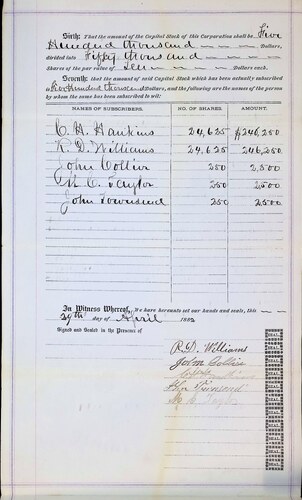 Sixth: That the amount of the Capital Stock of this Corporation shall be Five
Hundred thousand Dollars,
divided into Fifty thousand
Shares of the par value of Ten each.
Seventh: that the amount of said Capital Stock which has been actually subscribed
is Five Hundred thousand Dollars, and the following are the names of the persons
by whom the same has been subscribed to wit:
NAMES OF SUBSCRIBERS. NO. OF SHARES. AMOUNT.
C. H. Hankins 24,625 $246,250
R. D. Williams 24,625 246,250
John Collier 250 2,500
Taylor 250 2500
John Townsend 250 2500
In Witness Whereof, We have hereunto set our hands and seals, this
29th day of April
Signed and Sealed in the Presence of
R. D. Williams SEAL.
John Collier SEAL.
SEAL.
John Townsend SEAL.
SEAL.